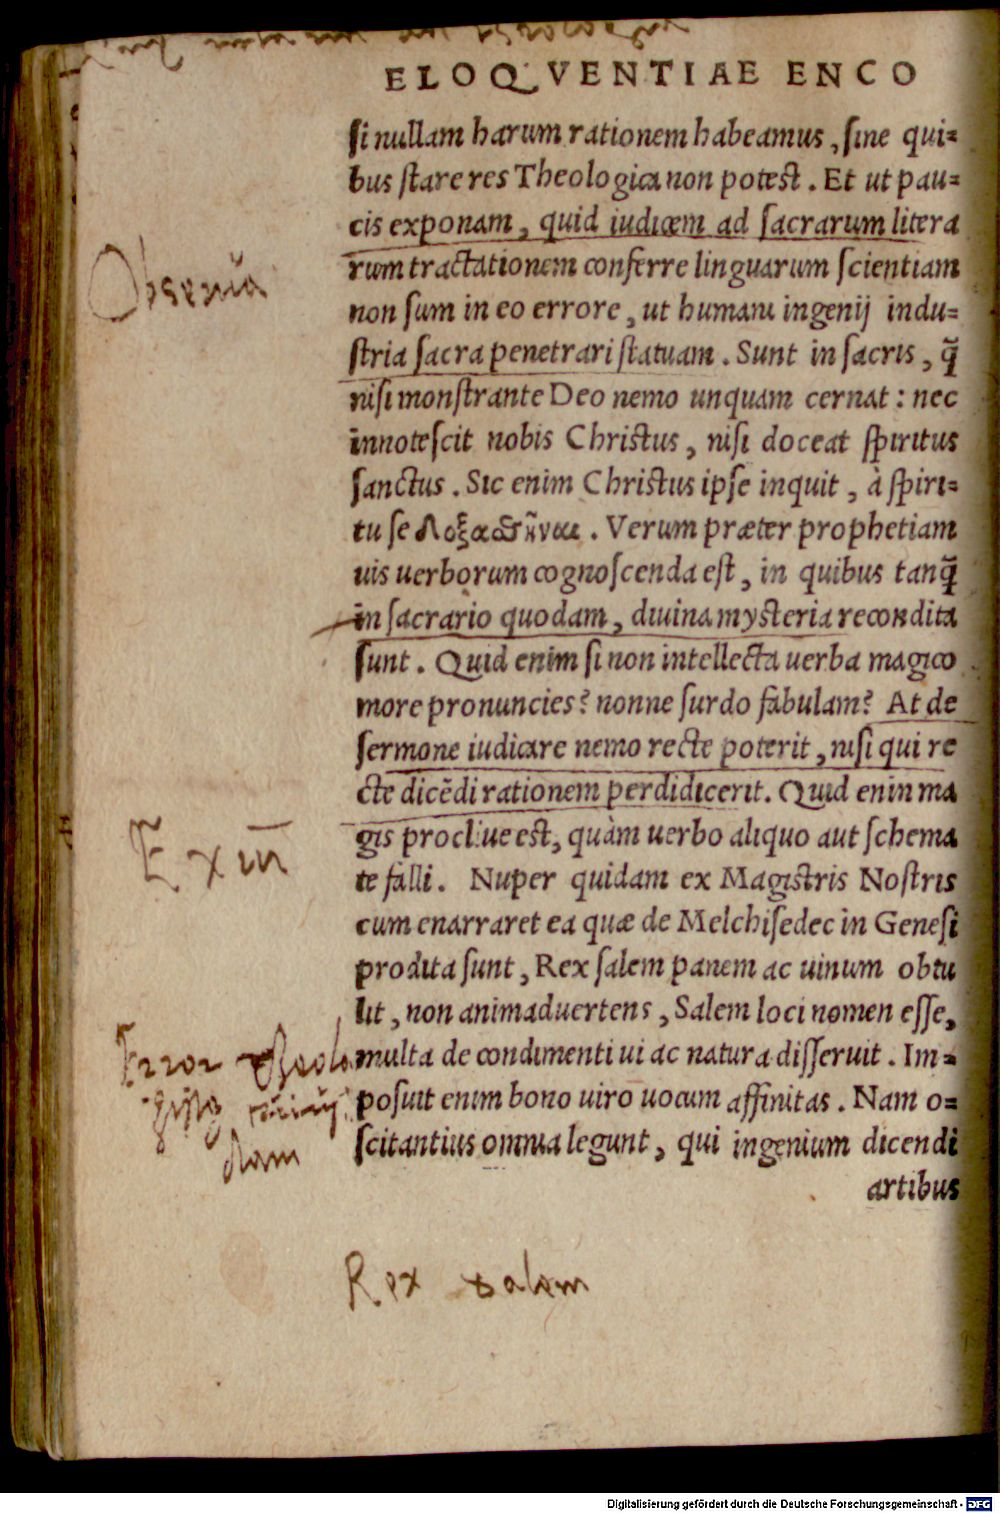 ELOQVENTIAE ENCO
si nullam harum rationem habeamus, sine qui=
bus stare res Theologica non potest. Et ut pau=
cis exponam, quid iudicem ad sacrarum litera
rum tractationem conferre linguarum scientiam
Obserua
non sum in eo errore, ut humani ingenij indu=
stria sacra penetrari statuam. Sunt in sacris, q̃
nisi monstrante Deo nemo unquam cernat: nec
innotescit nobis Christus, nisi doceat spiritus
sanctus. Sic enim Christus ipse inquit, à spiri=
tu se δοξασθῆναι. Verum præter prophetiam
uis uerborum cognoscenda est, in quibus tanq̃
in sacrario quodam, diuina mysteria recondita
sunt. Quid enim si non intellecta uerba magico
more pronuncies? nonne surdo fabulam? At de
sermone iudicare nemo recte poterit, nisi qui re
cte dicẽdi rationem perdidicerit. Quid enin ma
gis procliue est, quàm uerbo aliquo aut schema
te falli. Nuper quidam ex Magistris Nostris
cum enarraret ea quæ de Melchisedec in Genesi
prodita sunt, Rex salem panem ac uinum obtu
lit, non animaduertens, Salem loci nomen esse,
multa de condimenti ui ac natura disseruit. Im=
posuit enim bono uiro uocum affinitas. Nam o=
scitantius omnia legunt, qui ingenium dicendi
artibus
Error
Rex salem
Digitalisierung gefördert durch die Deutsche Forschungsgemeinschaft - DFG